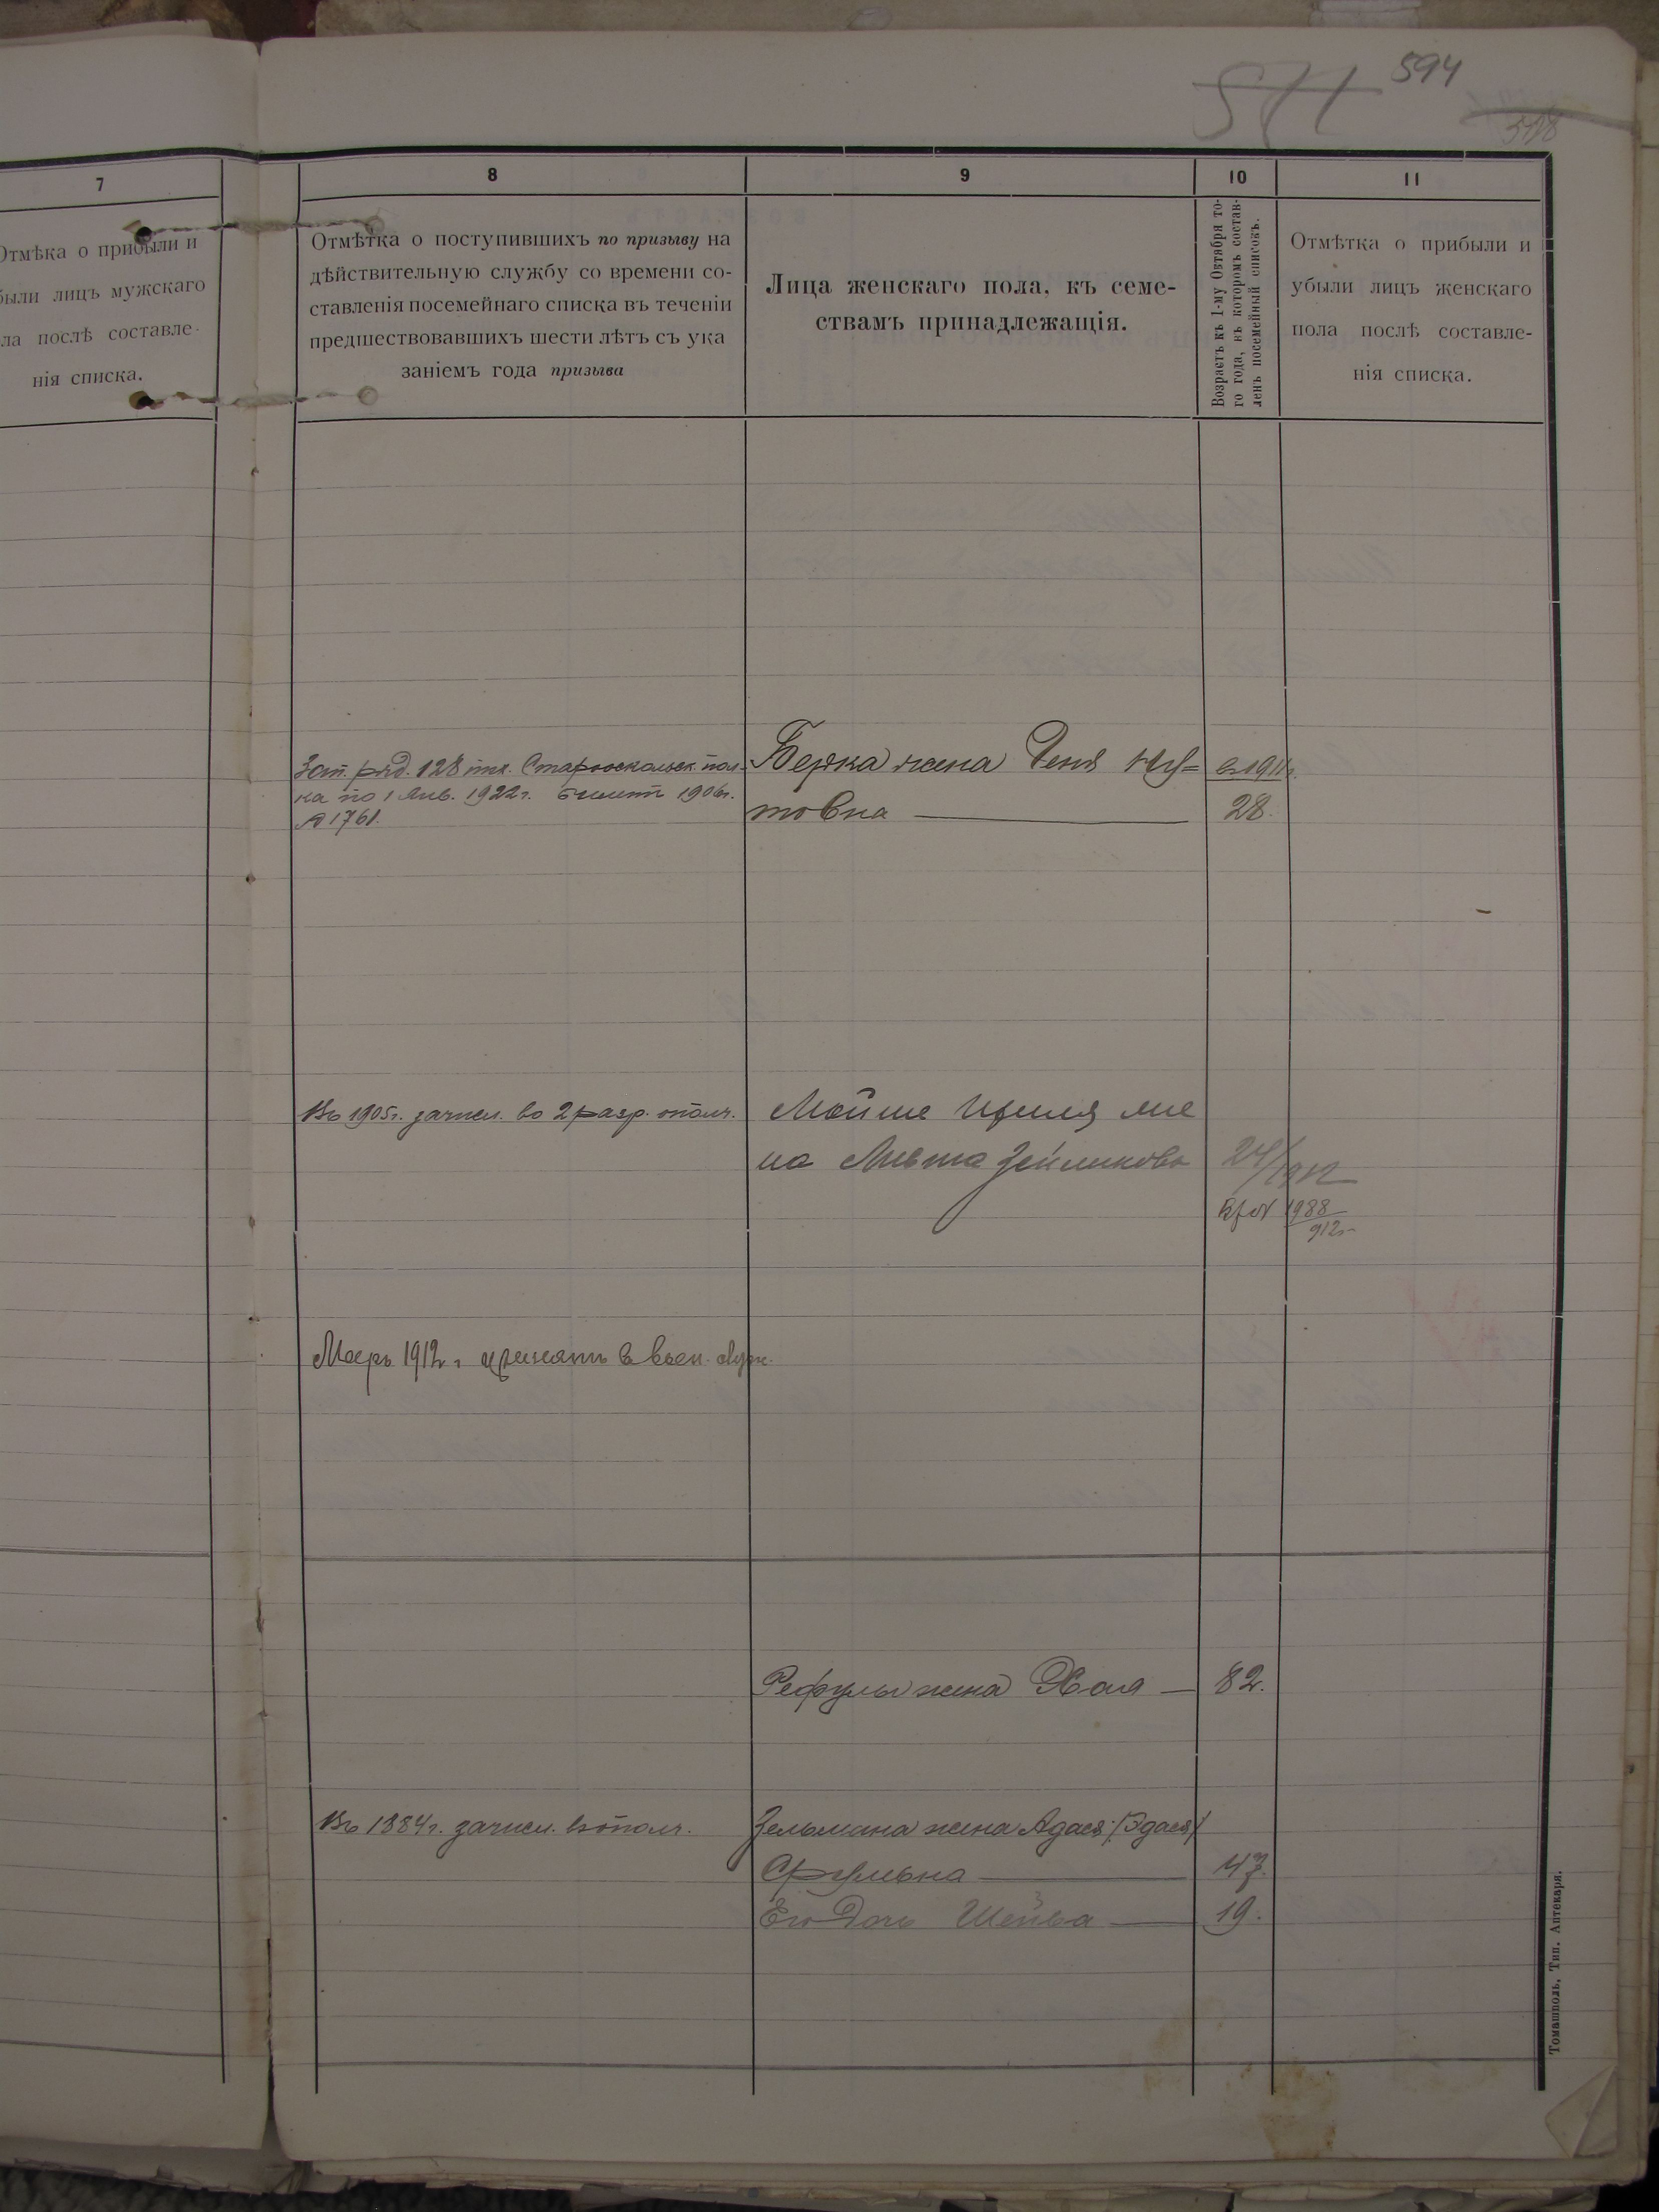 594
571
518
7
Отмѣка о прибыли и
были лицъ мужскаго
ла послѣ составле-
нія списка.
8
Отмѣтка о поступившихъ по призыву на
дѣйствительную службу со времени со-
ставленія посемейнаго списка въ теченіи
предшествовавшихъ шести лѣтъ съ ука
заніемъ года призыва
9
Лица женскаго пола, къ семе-
ствамъ принадлежащія.
10
Возрастъ къ 1-му Октября то-
го года, въ которомъ состав-
ленъ посемейный списокъ.
11
Отмѣтка о прибыли и
убыли лицъ женскаго
пола послѣ составле-
нія списка.
Зап. ряд. 128 пѣх. Старооскольск. пол-
ка по 1 Янв. 1922 г. билетъ 1906 г.
№ 1761.
Берка жена Геня Ну=
товна
в 1911 г.
28.
Въ 1905 г. зачисл. во 2 разр. ополч.
Мойше Ицеля же
на Зейликова
24/1912
1988
912 г.
1912 г. принятъ в воен. служ.
Рефулы жена Хая
82.
Въ 1884 г. зачисл. в ополч.
Зельмана жена Адася (Эдася)
Срулевна
47.
Его дочь Шейва
19.
Томашполь, Тип. Аптекаря.